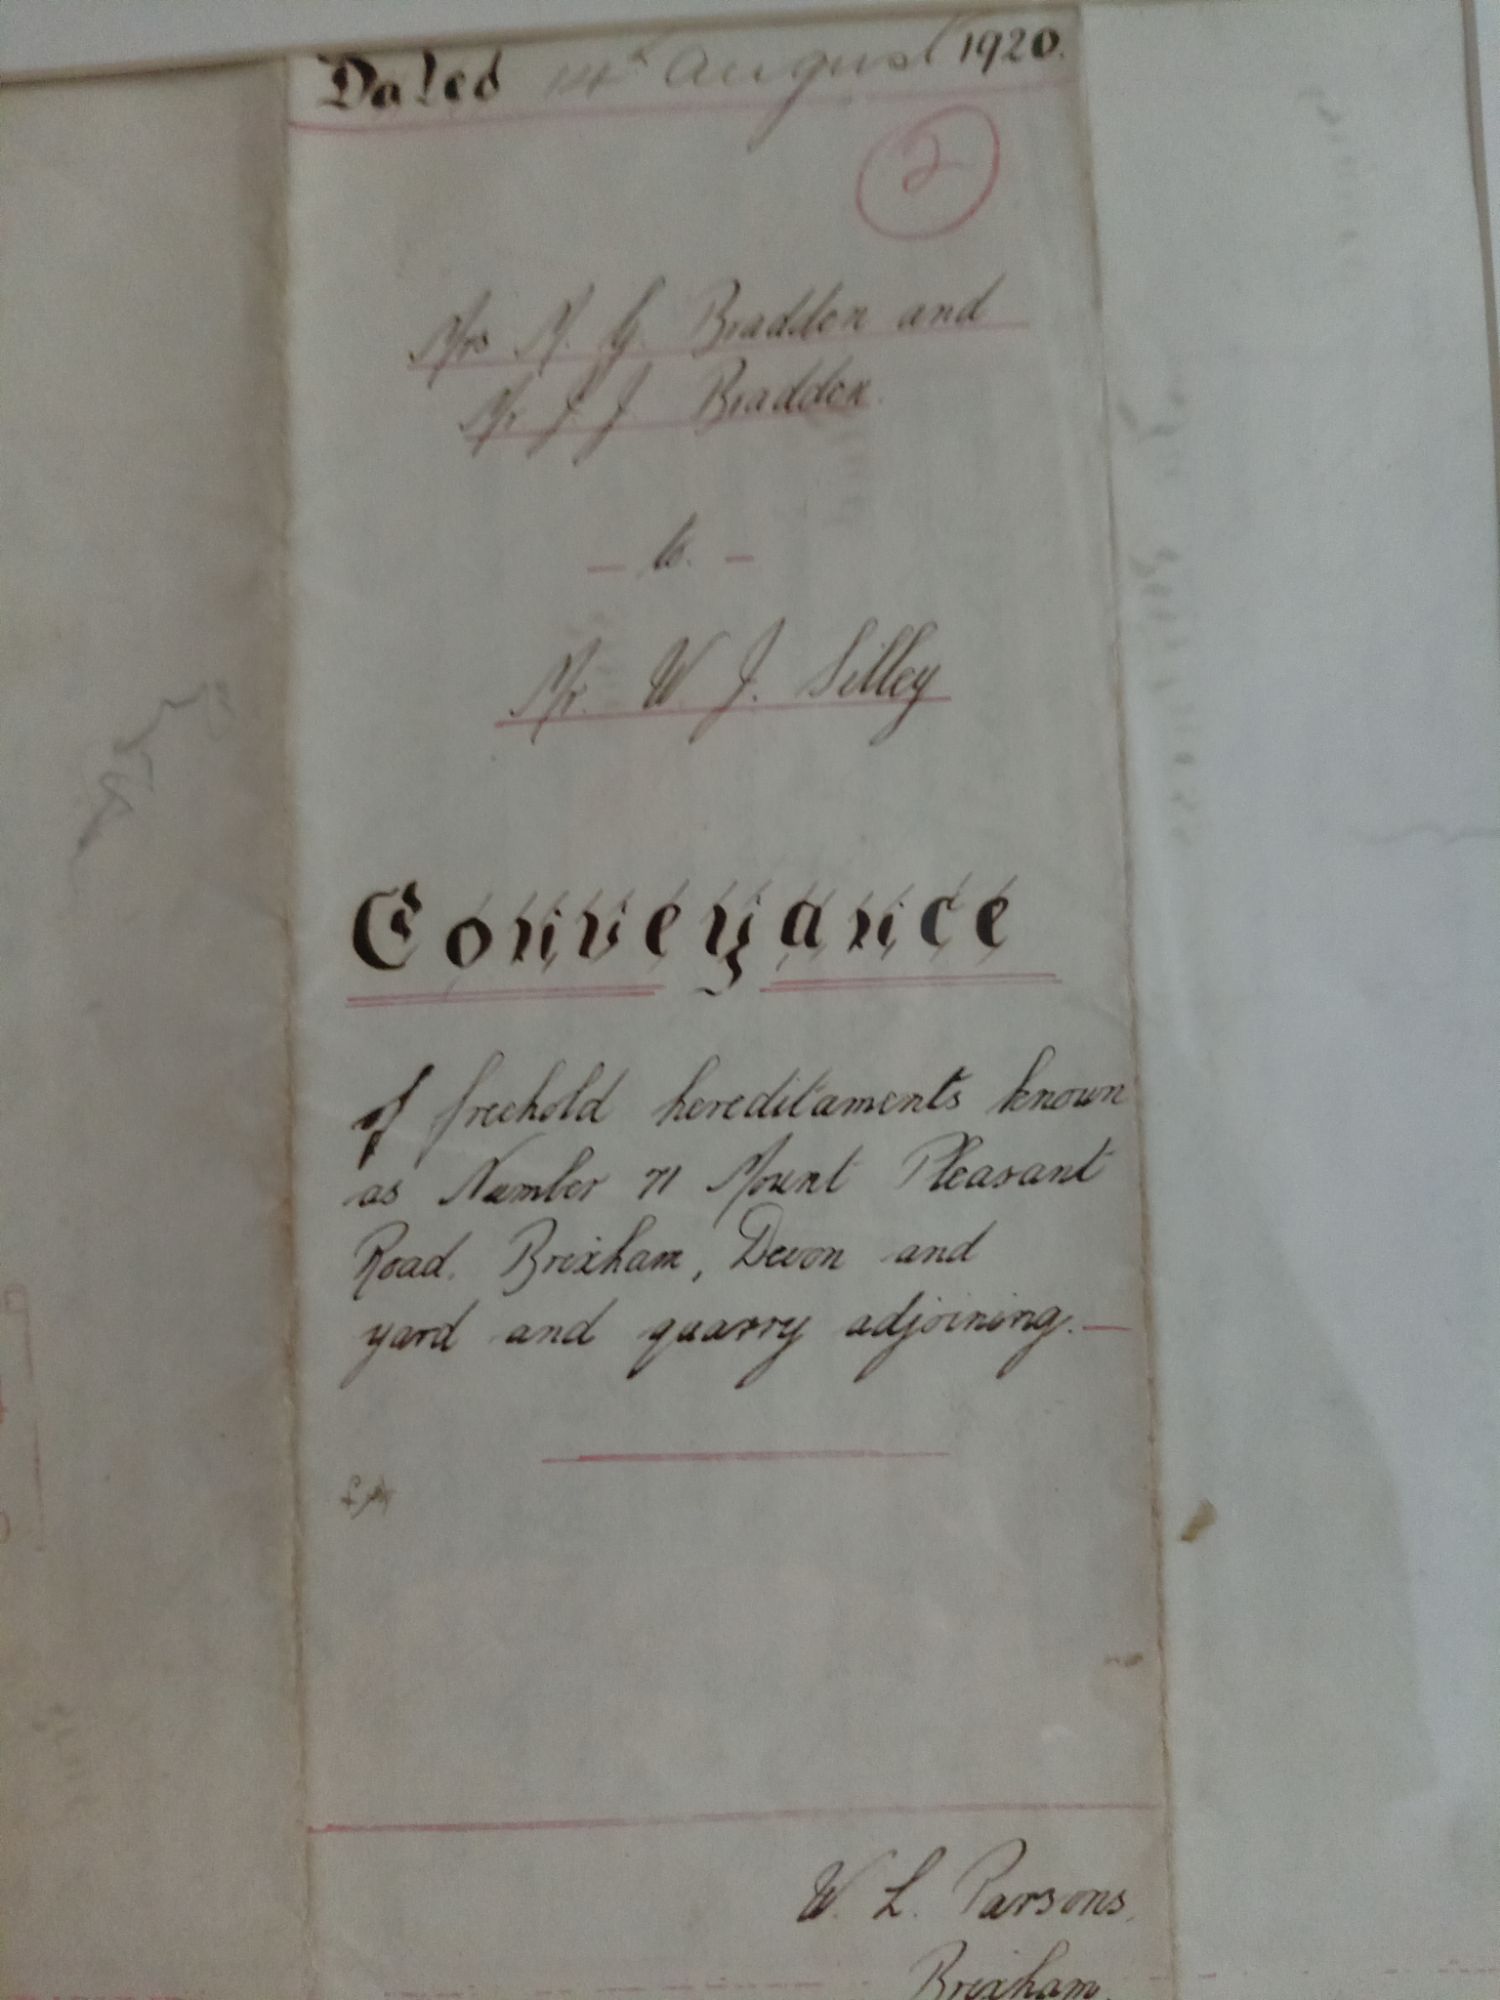 Dated 14th August 1920.
2
Mrs M. G. Braddon and
Mr J. J. Braddon.
- to. -
Mr. W. J. Silley
Conveyance
of freehold hereditaments known
as Number 71 Mount Pleasant
Road, Brixham, Devon and
yard and quarry adjoining. —
W. L. Parsons.
Brixham.